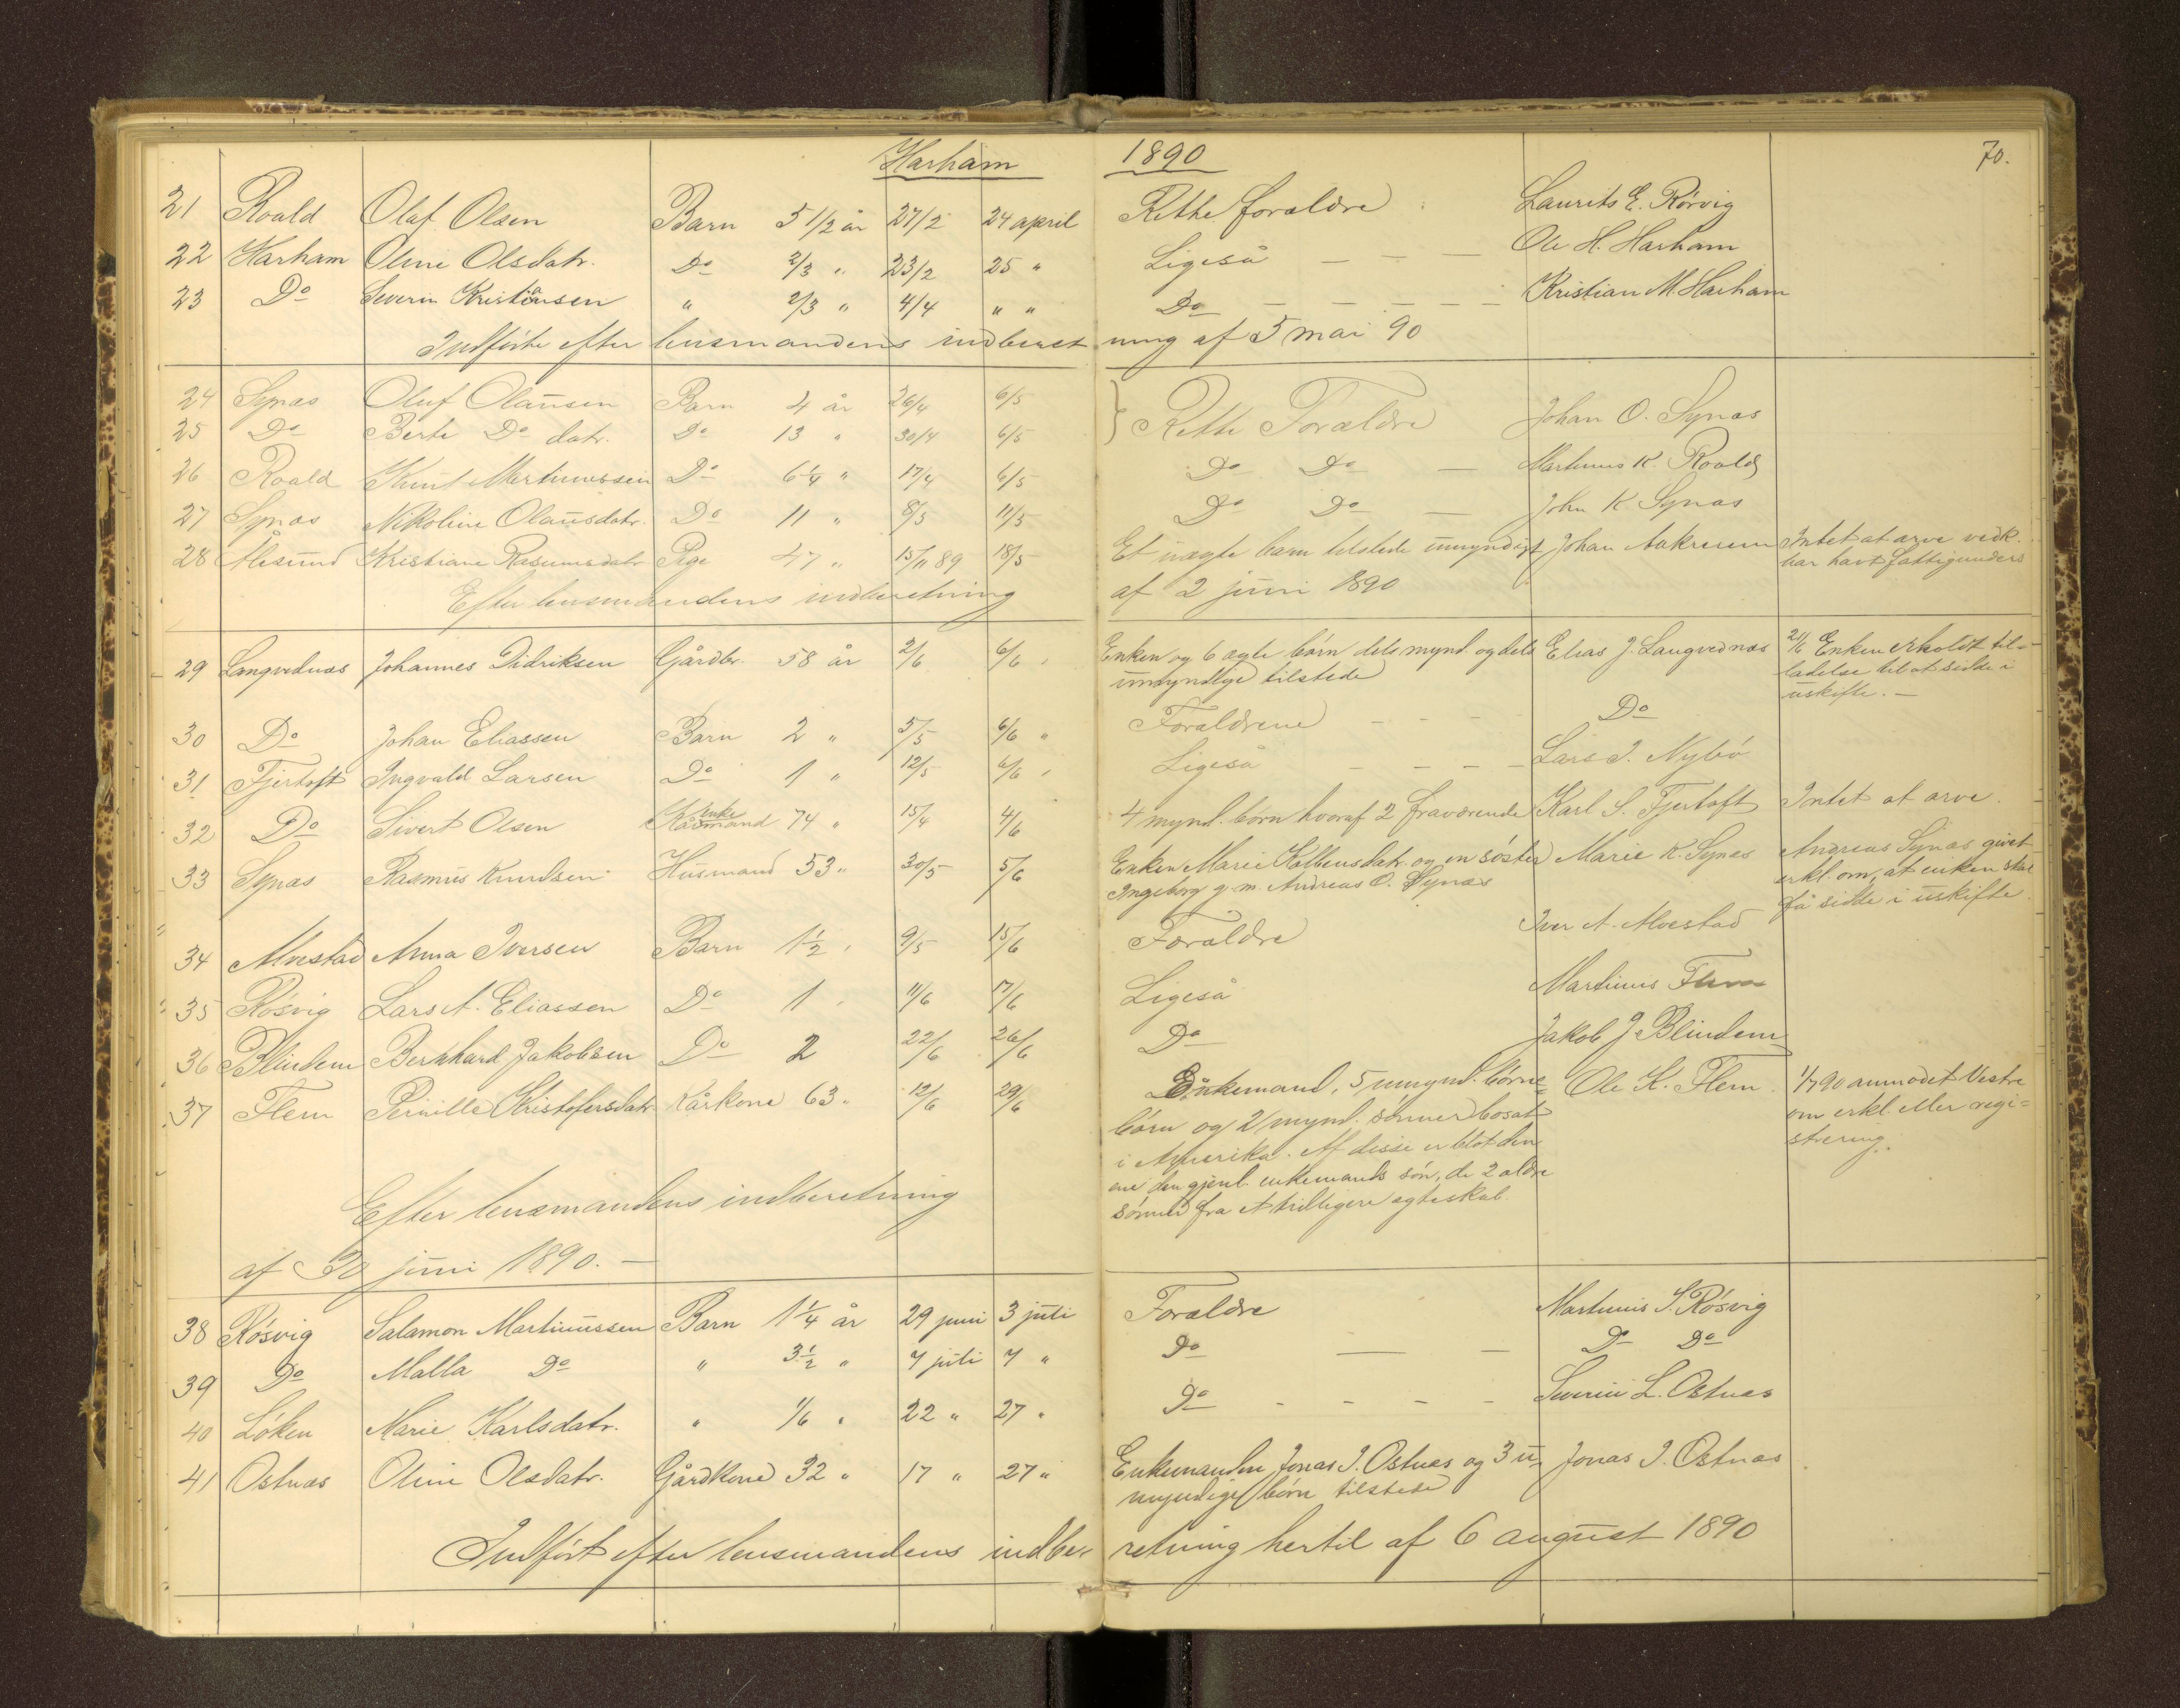 Harham 1890 70.
21 Roald Olaf Olsen Barn 5 1/2 år 27/2 24 april Rette forældre Laurits E. Rörvig
22 Harham Oline Olsdatr. Do 2/3 " 23/2 25 " Ligeså — — — Ole H. Harham
23 Do Severin Kristiansen " 2/3 " 4/4 " " Do — — — — — Kristian M. Harham
Indförte efter lensmandens indberetning af 5 mai 90
24 Synæs Oluf Olaŭsen Barn 4 år 26/4 6/5 } Rette Forældre Johan O. Synæs
25 Do Berte Do datr. Do 13 " 30/4 6/5
26 Roald Knut Martinussen Do 6 1/4 " 17/4 6/5 Do Do — Martinus K. Roald
27 Synæs Nikoline Olaŭsdatr. Do 11 " 8/5 11/5 Do Do — John K Synæs
28 Ålesund Kristiane Rasmusdatr Pige 47 " 15/11 89 18/5 Et uægte barn tilstede ŭmyndigt Johan Aakre Intet at arve vedk.
har havt fattigunders
Efter lensmandens indberetning af 2 jŭni 1890
29 Langvednæs Johannes Didriksen Gårdbr. 58 år 2/6 6/6 Enken og 6 ægte börn dels mynd. og dels Elias J. Langvednæs 24/6 Enken erholdt til=
ŭmyndige tilstede ladelse til at sidde i
ŭskifte. —
30 Do Johan Eliassen Barn 2 " 5/5 6/6 " Forældrene - - - Do
31 Fjertoft Ingvald Larsen Do 1 " 12/5 6/6 " Ligeså - - - - Lars I. Nybö
32 Do Sivert Olsen Kårmand enke 74 " 15/4 4/6 4 mynd. börn hvoraf 2 fraværende Karl S. Fjertoft Intet at arve.
33 Synæs Rasmus Knudsen Hŭsmand 53 " 30/5 5/6 Enken Marie Kolbensdatr. og en söster Marie K. Synæs Andreas Synæs givet
Ingeborg g. m. Andreas O. Synæs erkl. om, at enken skal
få sidde i ŭskifte
34 Alvestad Anna Iversen Barn 1 1/2 " 9/5 15/6 Forældre Iver A. Alvestad
35 Rösvig Lars A. Eliassen Do 1 " 11/6 17/6 Ligeså Martinus Flem
36 Blindem Bernhard Jakobsen Do 2 22/6 26/6 Do Jakob J. Blindem
37 Flem Pernille Kristofersdatr Kårkone 63 " 12/6 29/6 Enkemand, 5 ŭmynd. börne= Ole K. Flem 1/7 90 anmodet Vestre
börn og 2 mynd. sönner bosat om erkl. eller regi=
i Amerika. Af disse er blot den strering.
ene den gjenl. enkemands sön, de 2 ældre
sönner fra et tidligere ægteskab.
Efter lensmandens indberetning
af 30 jŭni 1890. —
38 Rösvig Salamon Martinŭssen Barn 1 1/4 år 29 juni 3 jŭli Forældre Martinus S. Rösvig
39 Do Malla Do " 3 1/2 " 7 jŭli 7 " Do — — Do Do
40 Löken Marie Karlsdatr. " 1/6 " 22 " 27 " Do - - - - Severin L. Ostnæs
41 Ostnæs Oline Olsdatr. Gårdkone 32 " 17 " 27 " Enkemanden Jonas I. Ostnæs og 3 ŭ- Jonas I. Ostnæs
myndige börn tilstede
Indfört efter lensmandens indberetning hertil af 6 aŭgŭst 1890